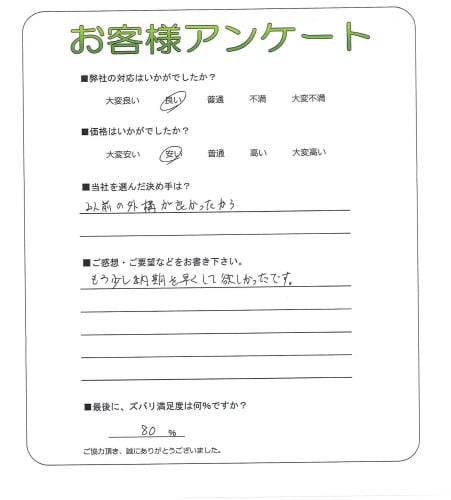 お客様アンケート
■弊社の対応はいかがでしたか？
大変良い 良い 普通 不満 大変不満
■価格はいかがでしたか？
大変安い 安い 普通 高い 大変高い
■当社を選んだ決め手は？
以前の外構が良かったから
■ご感想・ご要望などをお書き下さい。
もう少し納期を早くして欲しかったです。
■最後に、ズバリ満足度は何％ですか？
80 ％
ご協力頂き、誠にありがとうございました。